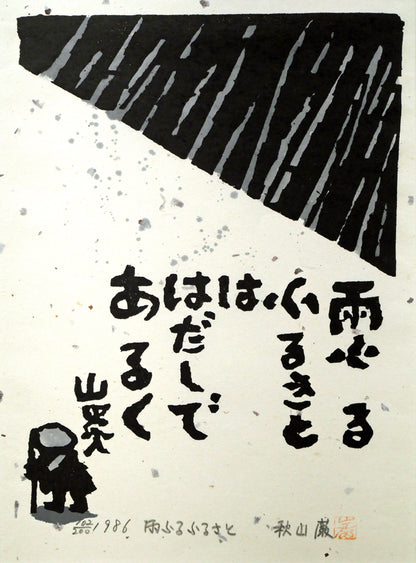 雨ふる
ふるさと
は
はだしで
あるく
山頭火
102/200 1986 雨ふるふるさと 秋山巌